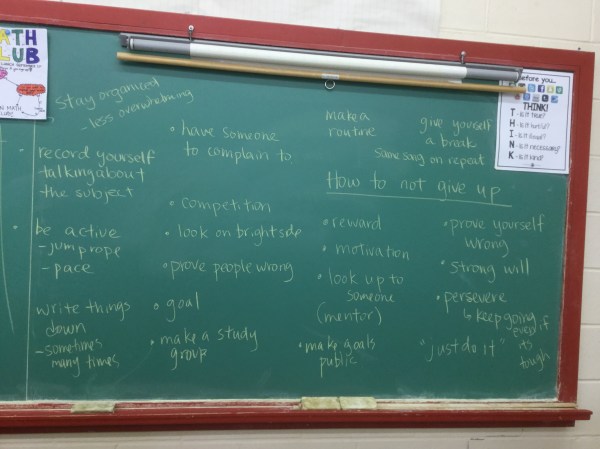 ATH
LUB
Stay organized
- less overwhelming
• record yourself
talking about
the subject
• be active
- jump rope
- pace
write things
down
- sometimes
many times
• have someone
to complain to
• competition
• look on bright side
• prove people wrong
• goal
• make a study
group
make a
routine
give yourself
a break
same song on repeat
How to not give up
• reward
• motivation
• look up to
someone
(mentor)
• make goals
public
• prove yourself
wrong
• strong will
• persevere
↳ keep going
even if
it's
tough
"just do it"
Before you...
THINK!
T - Is it true?
H - Is it helpful?
I - Is it
N - Is it necessary?
K - Is it kind?